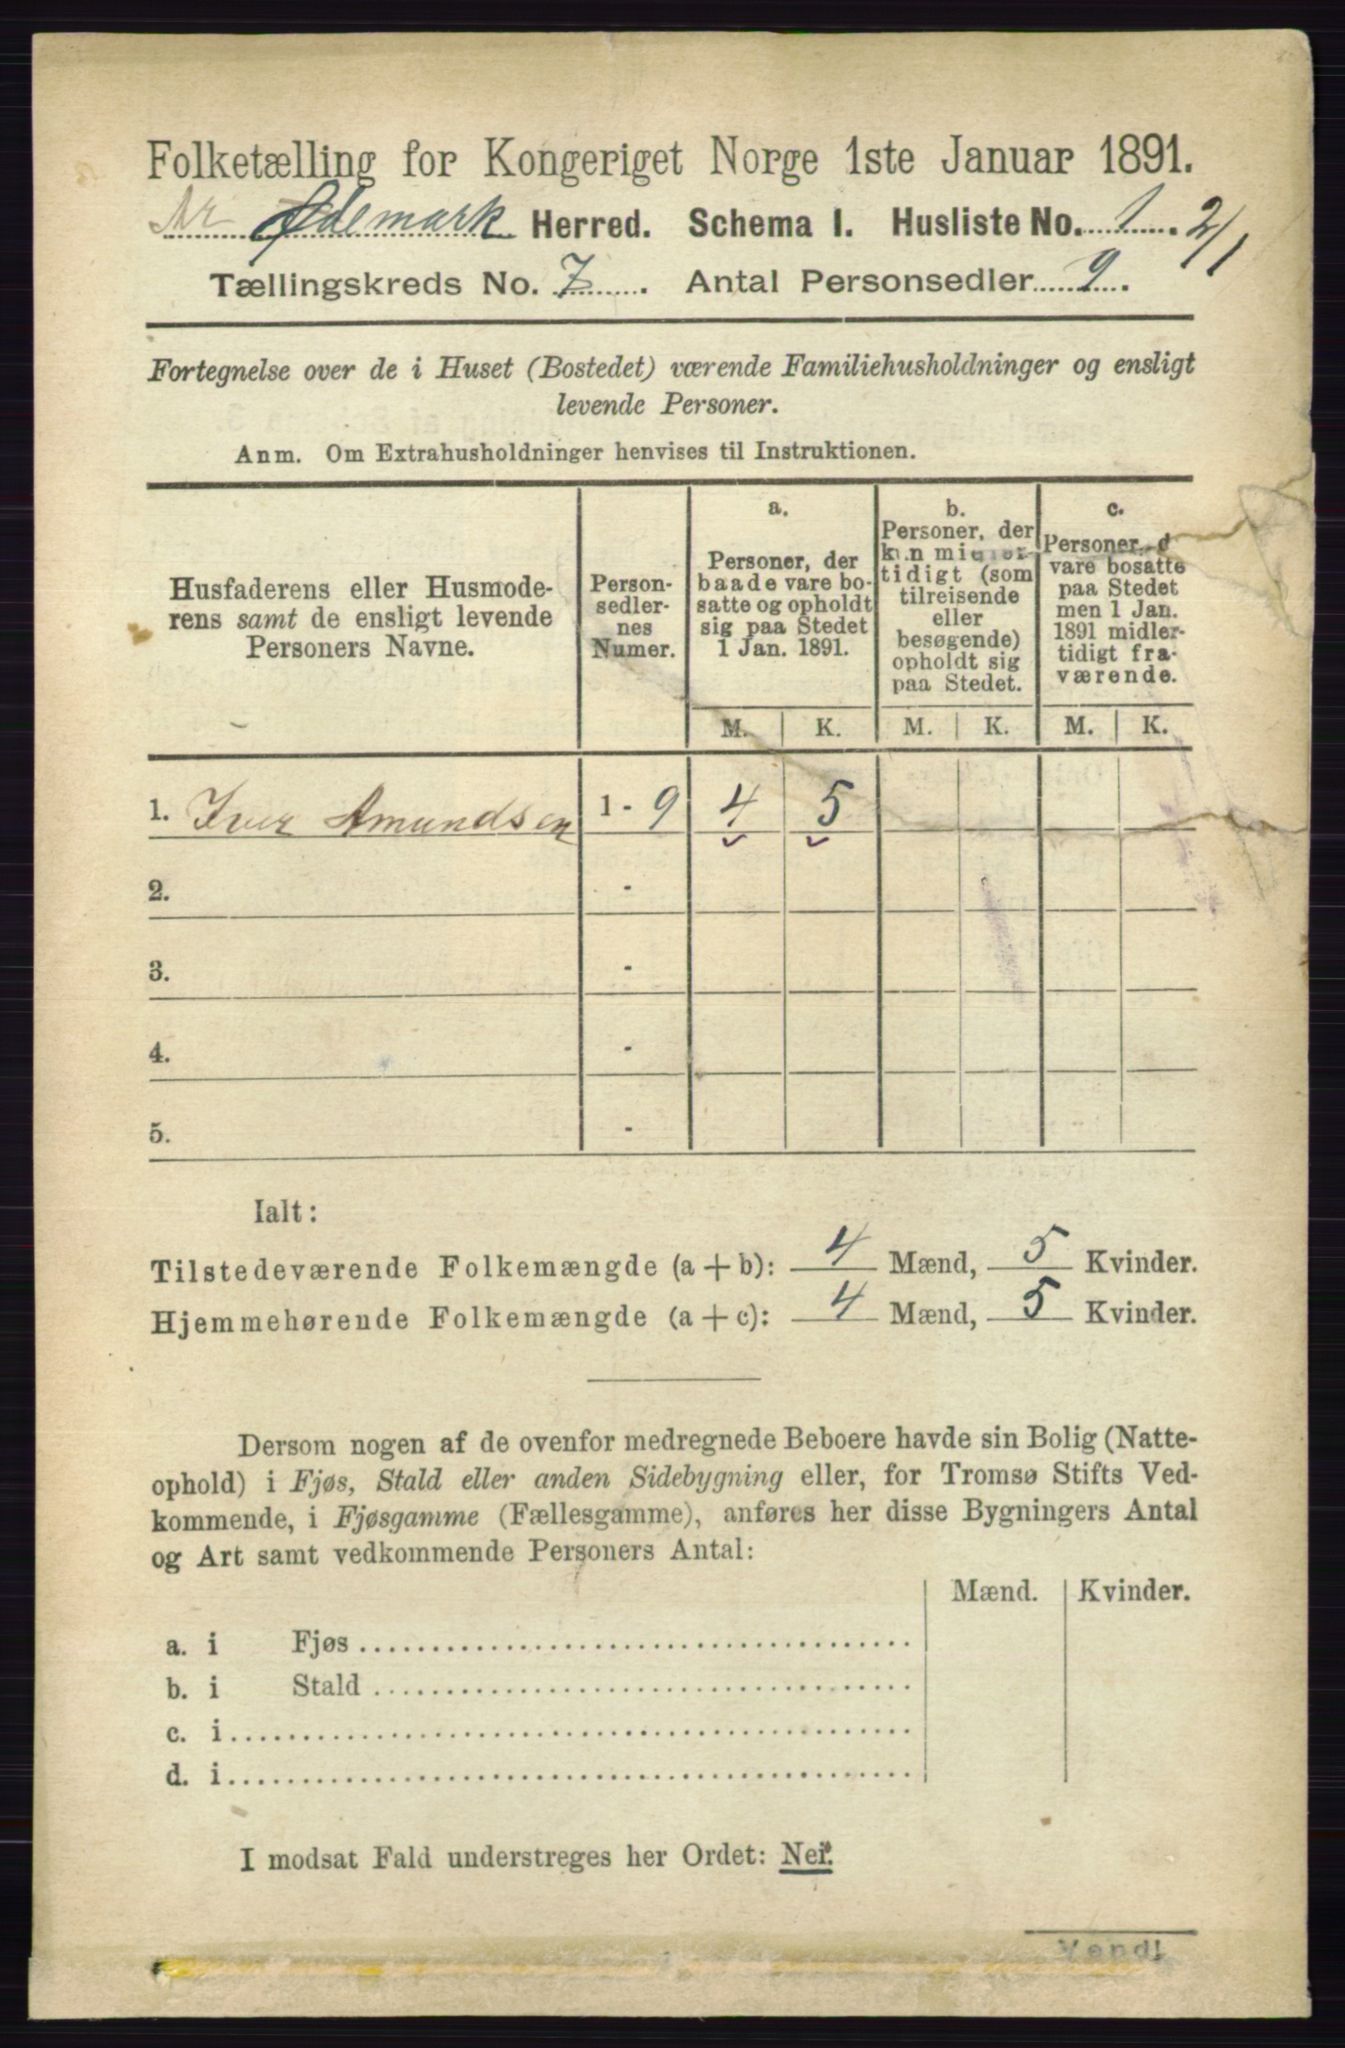 Folketælling for Kongeriget Norge 1ste Januar 1891.
Nr Ødemark Herred. Schema I. Husliste No. 1. 2/1
Tællingskreds No. 7. Antal Personsedler 9.
Fortegnelse over de i Huset (Bostedet) værende Familiehusholdninger og ensligt
levende Personer.
Anm. Om Extrahusholdninger henvises til Instruktionen.
Husfaderens eller Husmode-
rens samt de ensligt levende
Personers Navne.
Person-
sedler-
nes
Numer.
a.
Personer, der
baade vare bo-
satte og opholdt
sig paa Stedet
1 Jan. 1891.
b.
Personer, der
kun midler-
tidigt (som
tilreisende
eller
besøgende)
opholdt sig
paa Stedet.
c.
Personer, d
vare bosatte
paa Stedet
men 1 Jan.
1891 midler-
tidigt fra-
værende.
M. K. M. K. M. K.
1. Iver Amundsen 1 - 9 4 5
2. -
3. -
4. -
5. -
Ialt:
Tilstedeværende Folkemængde (a + b): 4 Mænd, 5 Kvinder.
Hjemmehørende Folkemængde (a + c): 4 Mænd, 5 Kvinder.
Dersom nogen af de ovenfor medregnede Beboere havde sin Bolig (Natte-
ophold) i Fjøs, Stald eller anden Sidebygning eller, for Tromsø Stifts Ved-
kommende, i Fjøsgamme (Fællesgamme), anføres her disse Bygningers Antal
og Art samt vedkommende Personers Antal:
Mænd. Kvinder.
a. i Fjøs
b. i Stald
c. i
d. i
I modsat Fald understreges her Ordet: Nei.
Vend!